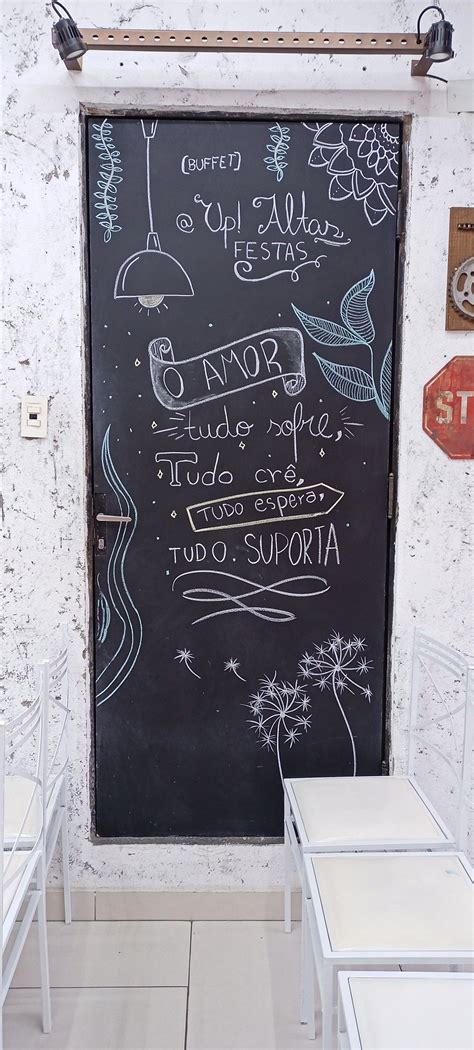 [BUFFET]
@ Up! Altas
FESTAS
O AMOR
tudo sofre,
Tudo crê,
TUDO espera,
TUDO. SUPORTA
ST